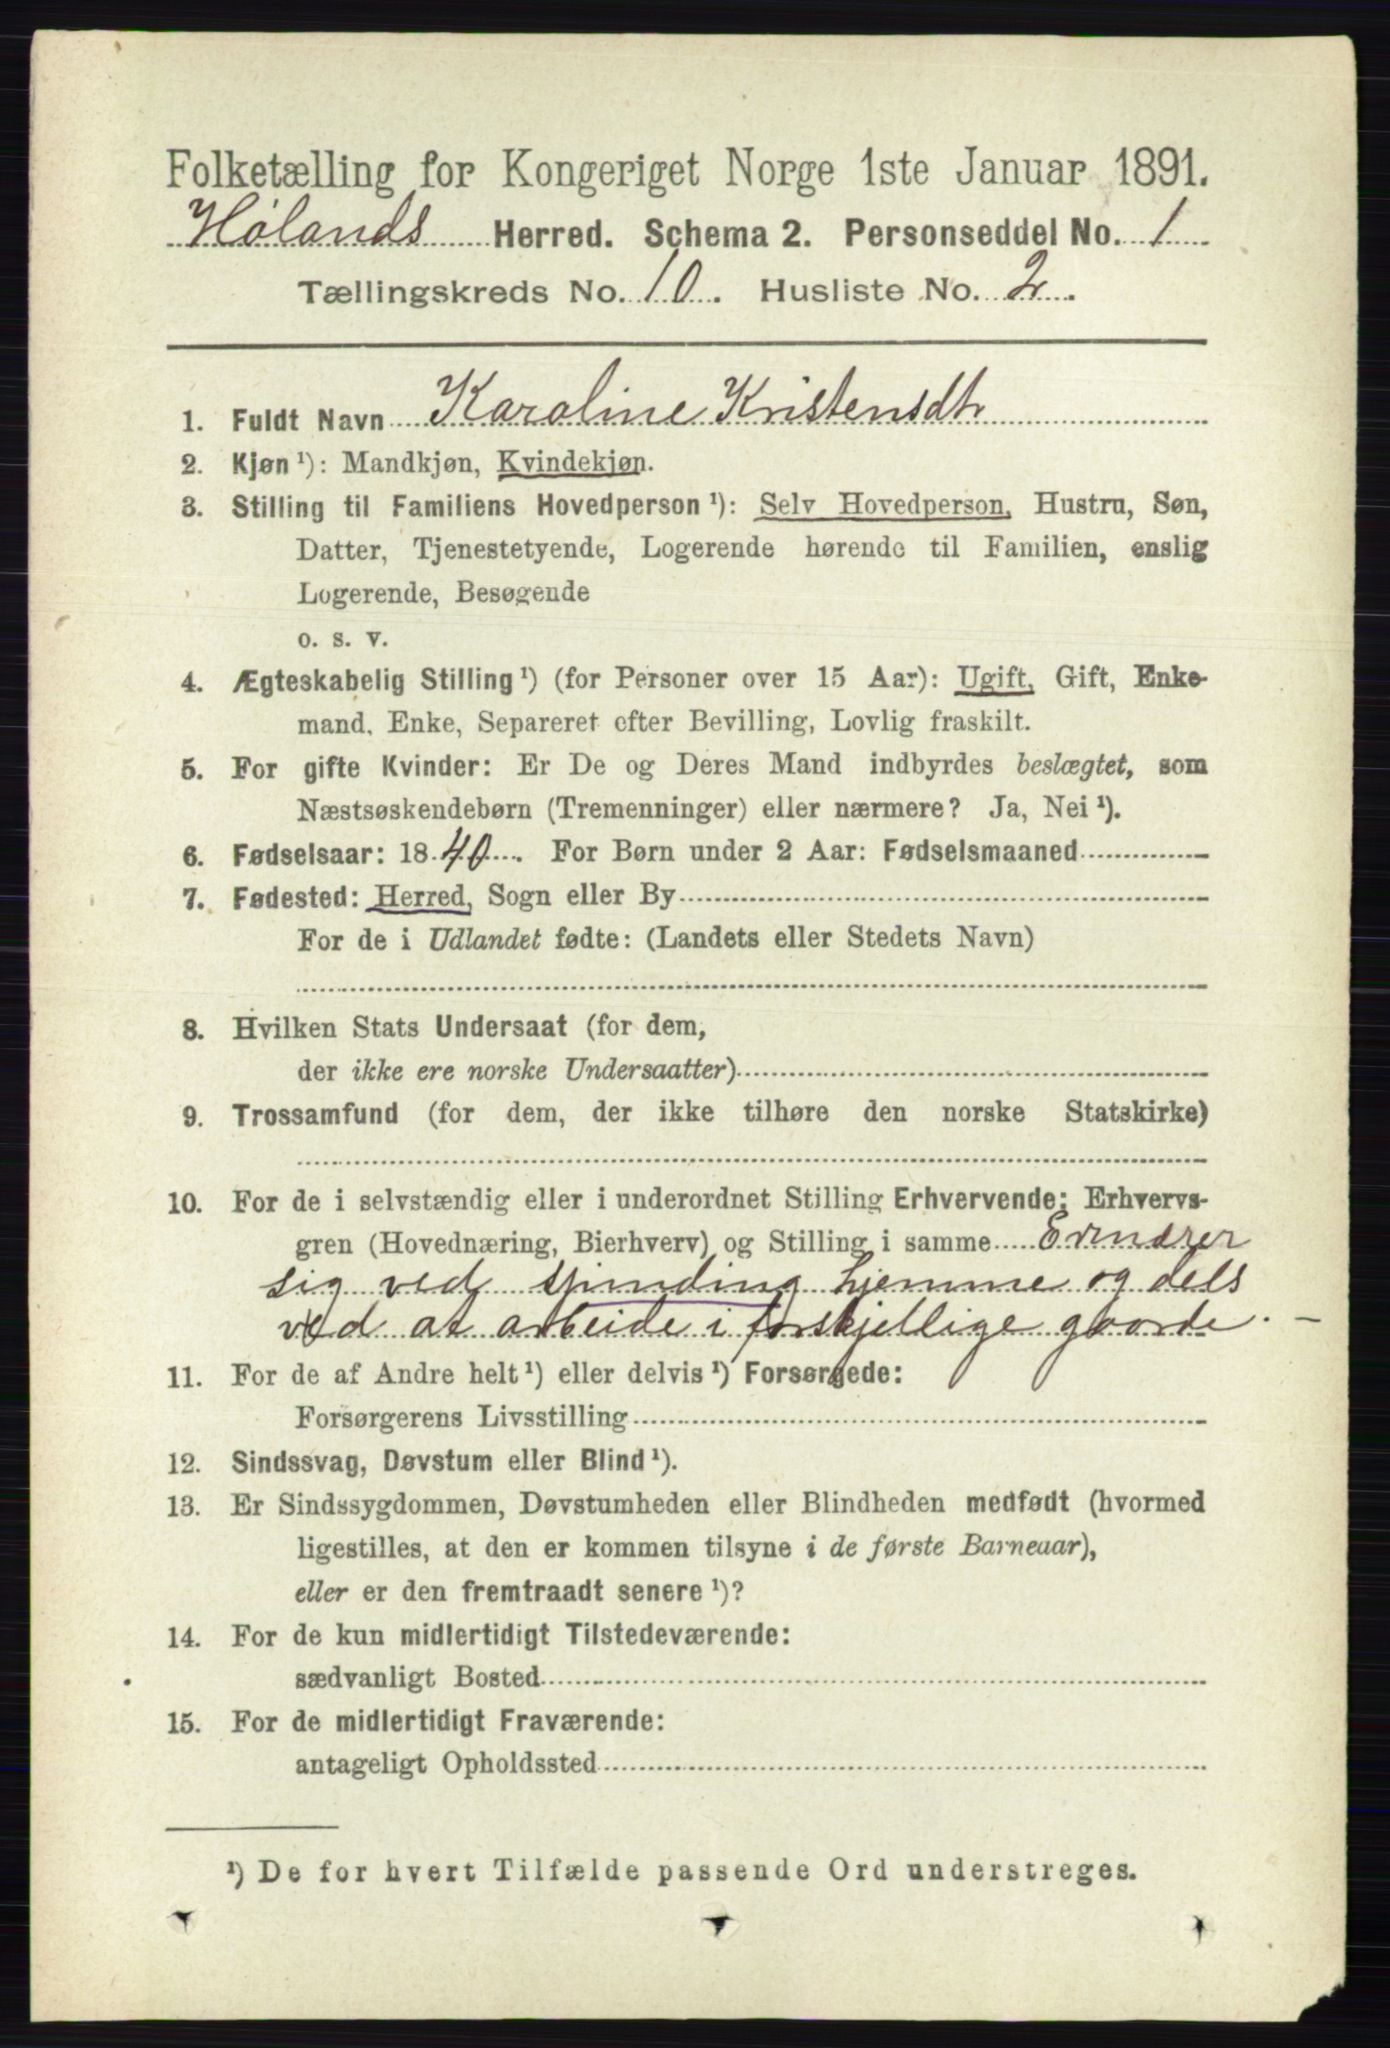 Folketælling for Kongeriget Norge 1ste Januar 1891.
Hølands Herred. Schema 2. Personseddel No. 1
Tællingskreds No. 10. Husliste No. 2.
1. Fuldt Navn Karoline Kristensdtr
2. Kjøn ¹): Mandkjøn, Kvindekjøn.
3. Stilling til Familiens Hovedperson ¹): Selv Hovedperson, Hustru, Søn,
Datter, Tjenestetyende, Logerende hørende til Familien, enslig
Logerende, Besøgende
o. s. v.
4. Ægteskabelig Stilling ¹) (for Personer over 15 Aar): Ugift, Gift, Enke-
mand, Enke, Separeret efter Bevilling, Lovlig fraskilt.
5. For gifte Kvinder: Er De og Deres Mand indbyrdes beslægtet, som
Næstsøskendebørn (Tremenninger) eller nærmere? Ja, Nei ¹).
6. Fødselsaar: 1840. For Børn under 2 Aar: Fødselsmaaned
7. Fødested: Herred, Sogn eller By
For de i Udlandet fødte: (Landets eller Stedets Navn)
8. Hvilken Stats Undersaat (for dem,
der ikke ere norske Undersaatter)
9. Trossamfund (for dem, der ikke tilhøre den norske Statskirke)
10. For de i selvstændig eller i underordnet Stilling Erhvervende: Erhvervs-
gren (Hovednæring, Bierhverv) og Stilling i samme Ernærer
sig ved spinding hjemme og dels
ved at arbeide i forskjellige gaarde. —
11. For de af Andre helt ¹) eller delvis ¹) Forsørgede:
Forsørgerens Livsstilling
12. Sindssvag, Døvstum eller Blind ¹).
13. Er Sindssygdommen, Døvstumheden eller Blindheden medfødt (hvormed
ligestilles, at den er kommen tilsyne i de første Barneaar),
eller er den fremtraadt senere ¹)?
14. For de kun midlertidigt Tilstedeværende:
sædvanligt Bosted
15. For de midlertidigt Fraværende:
antageligt Opholdssted
¹) De for hvert Tilfælde passende Ord understreges.